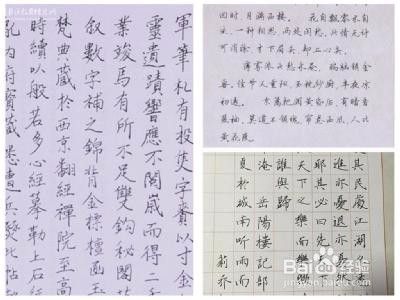 軍筆札有投其字賚以寸金
靈遺蹟響應不閡歲而得二
業竣焉有所不足雙鈎秘閣
叙數字補之錦背金標檀函
梵典藏於西京翻經禪院至高
時續以般若多心經摹勒上石
回时，月满西楼。 花自飘零水自
流。一种相思，两处闲愁。此情无计
可消除，才下眉头，却上心头。
薄雾浓云愁永昼，瑞脑销金
兽。佳节又重阳，玉枕纱厨，半夜凉
初透。 东篱把酒黄昏后，有暗香
盈袖。莫道不销魂，帘卷西风，人比
黄花瘦。
其民處江湖之
進亦憂退亦憂然
耶其必曰先
天下之樂而樂
誰與歸
淹岳陽樓記節
夏於城南听雨
莉乔
Baidu经验